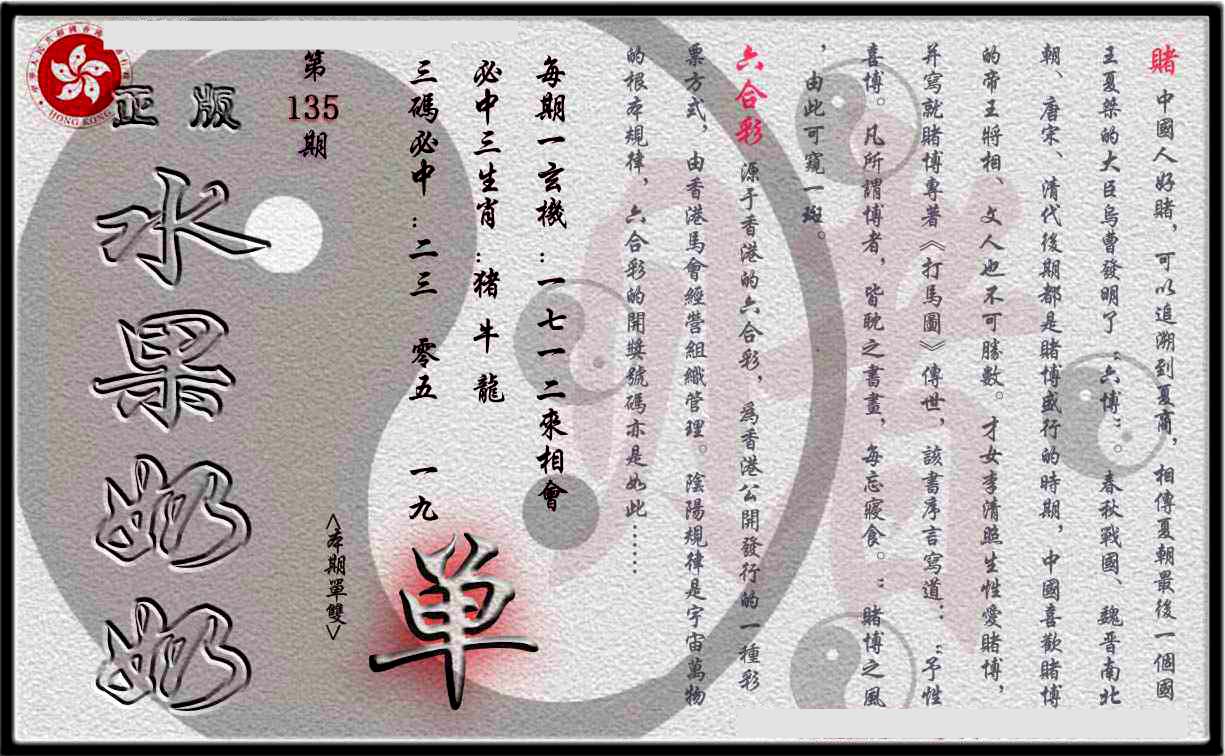 賭 中國人好賭，可以追溯到夏商，相傳夏朝最後一個國
王夏桀的大臣烏曹發明了“六博”。春秋戰國、魏晋南北
朝、唐宋、清代後期都是賭博盛行的時期，中國喜歡賭博
的帝王將相、文人也不可勝數。才女李清照生性愛賭博，
并寫就賭博專著《打馬圖》傳世，該書序言寫道：“予性
喜博。凡所謂博者，皆耽之書畫，每忘寢食。”賭博之風
，由此可窺一斑。
六合彩 源于香港的六合彩，為香港公開發行的一種彩
票方式，由香港馬會經營組織管理。陰陽規律是宇宙萬物
的根本規律，六合彩的開獎號碼亦是如此……
每期一玄機：一七一二來相會
必中三生肖：猪 牛 龍
三碼必中：二三 零五 一九
<本期單雙>
单
第135期
正版
水果奶奶
HONG KONG